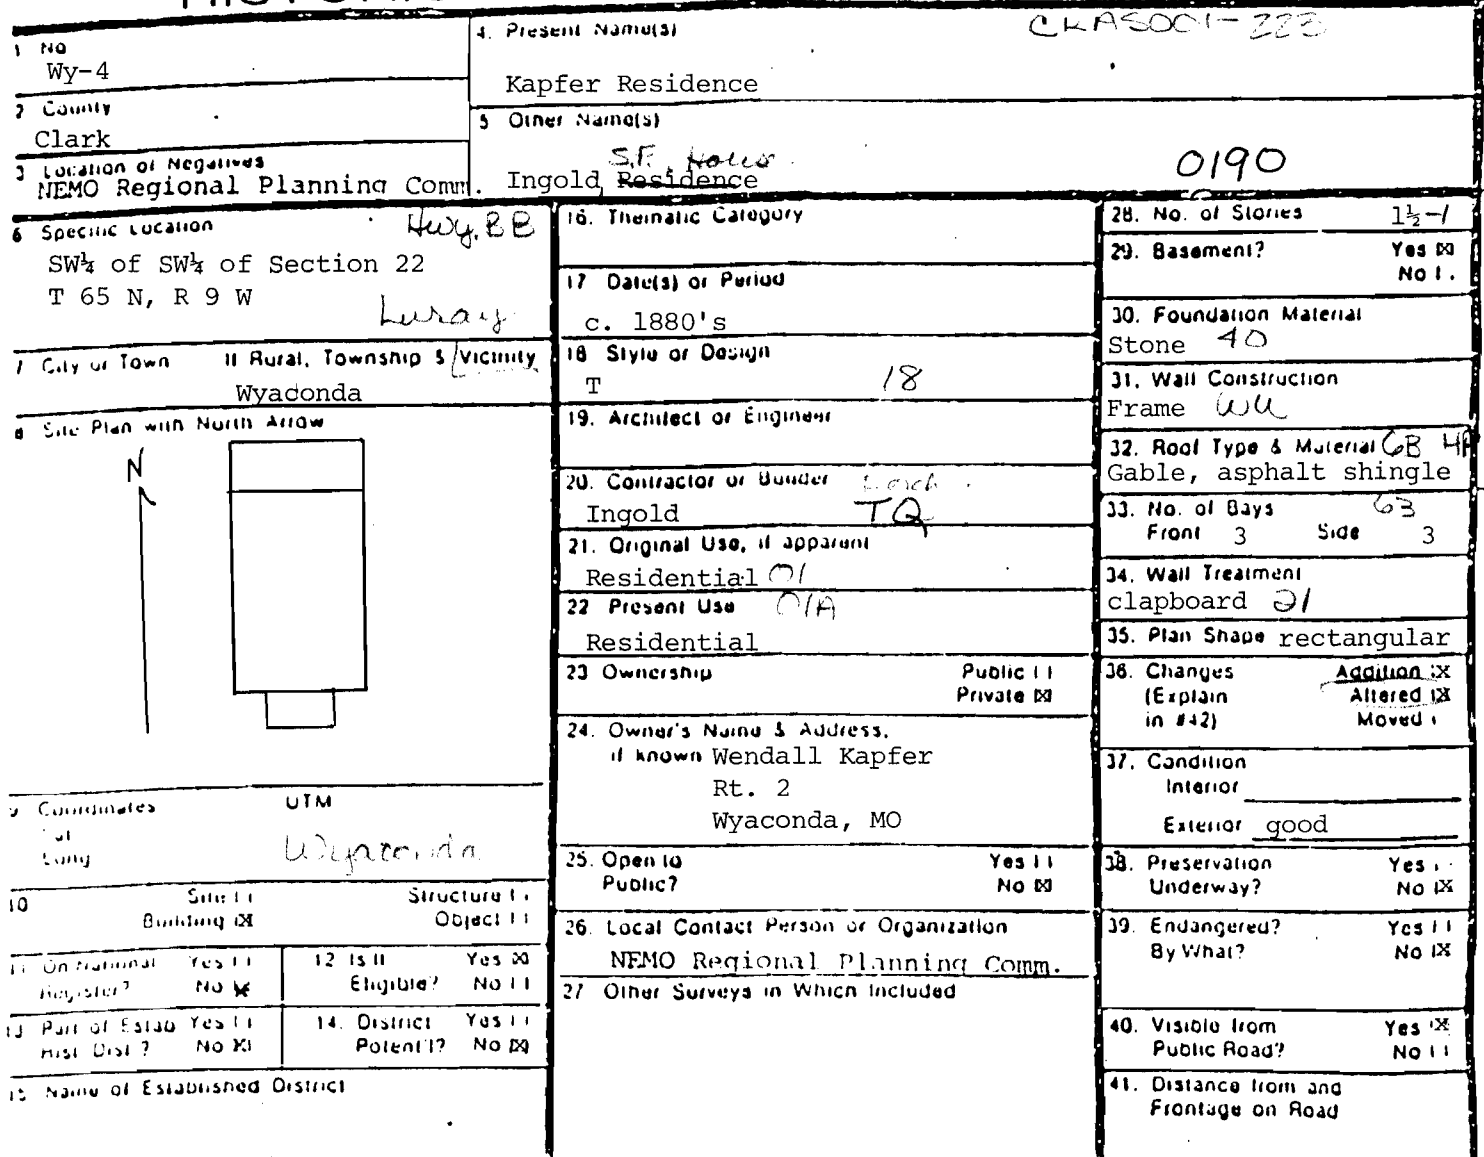 CKAS001-223
1 No
Wy-4
2 County
Clark
3 Location of Negatives
NEMO Regional Planning Comm.
4. Present Name(s)
Kapfer Residence
5 Other Name(s)
S.F. House
Ingold Residence
0190
6 Specific Location
Hwy. BB
SW¼ of SW¼ of Section 22
T 65 N, R 9 W
Luray
7 City or Town If Rural, Township & Vicinity
Wyaconda
8 Site Plan with North Arrow
N
9 Coordinates UTM
Lat
Long
Wyaconda
10 Site Structure
Building X Object
11 On National Yes
Register? No X
12 Is It Yes X
Eligible? No
13 Part of Estab Yes
Hist Dist? No X
14. District Yes
Potent'l? No X
15 Name of Established District
16. Thematic Category
17 Date(s) or Period
c. 1880's
18 Style or Design
T 18
19. Architect or Engineer
20. Contractor or Builder
Ingold TQ
21. Original Use, if apparent
Residential 01
22 Present Use 01A
Residential
23 Ownership Public
Private X
24. Owner's Name & Address,
if known Wendall Kapfer
Rt. 2
Wyaconda, MO
25. Open to Yes
Public? No X
26. Local Contact Person or Organization
NEMO Regional Planning Comm.
27 Other Surveys in Which Included
28. No. of Stories 1½-1
29. Basement? Yes X
No
30. Foundation Material
Stone 40
31. Wall Construction
Frame WU
32. Roof Type & Material GB 4A
Gable, asphalt shingle
63
33. No. of Bays
Front 3 Side 3
34. Wall Treatment
clapboard 21
35. Plan Shape rectangular
36. Changes Addition X
(Explain Altered X
in #42) Moved
37. Condition
Interior
Exterior good
38. Preservation Yes
Underway? No X
39. Endangered? Yes
By What? No X
40. Visible from Yes X
Public Road? No
41. Distance from and
Frontage on Road